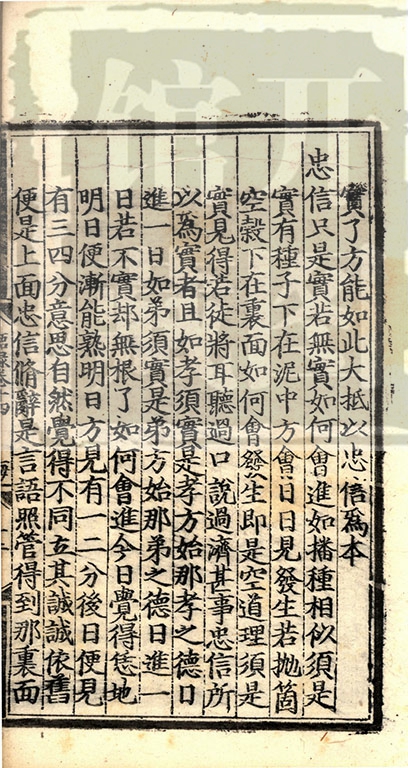 實了方能如此大抵以忠信爲本
忠信只是實若無實如何會進如播種相似須是
實有種子下在泥中方會日日見發生若拋箇
空殼下在裏面如何會發生即是空道理須是
實見得若徒將耳聽過口說過濟甚事忠信所
以爲實者且如孝須實是孝方始那孝之德日
進一日如弟須實是弟方始那弟之德日進一
日若不實却無根了如何會進今日覺得恁地
明日便漸能熟明日方見有一二分後日便見
有三四分意思自然覺得不同立其誠誠依舊
便是上面忠信脩辭是言語照管得到那裏面